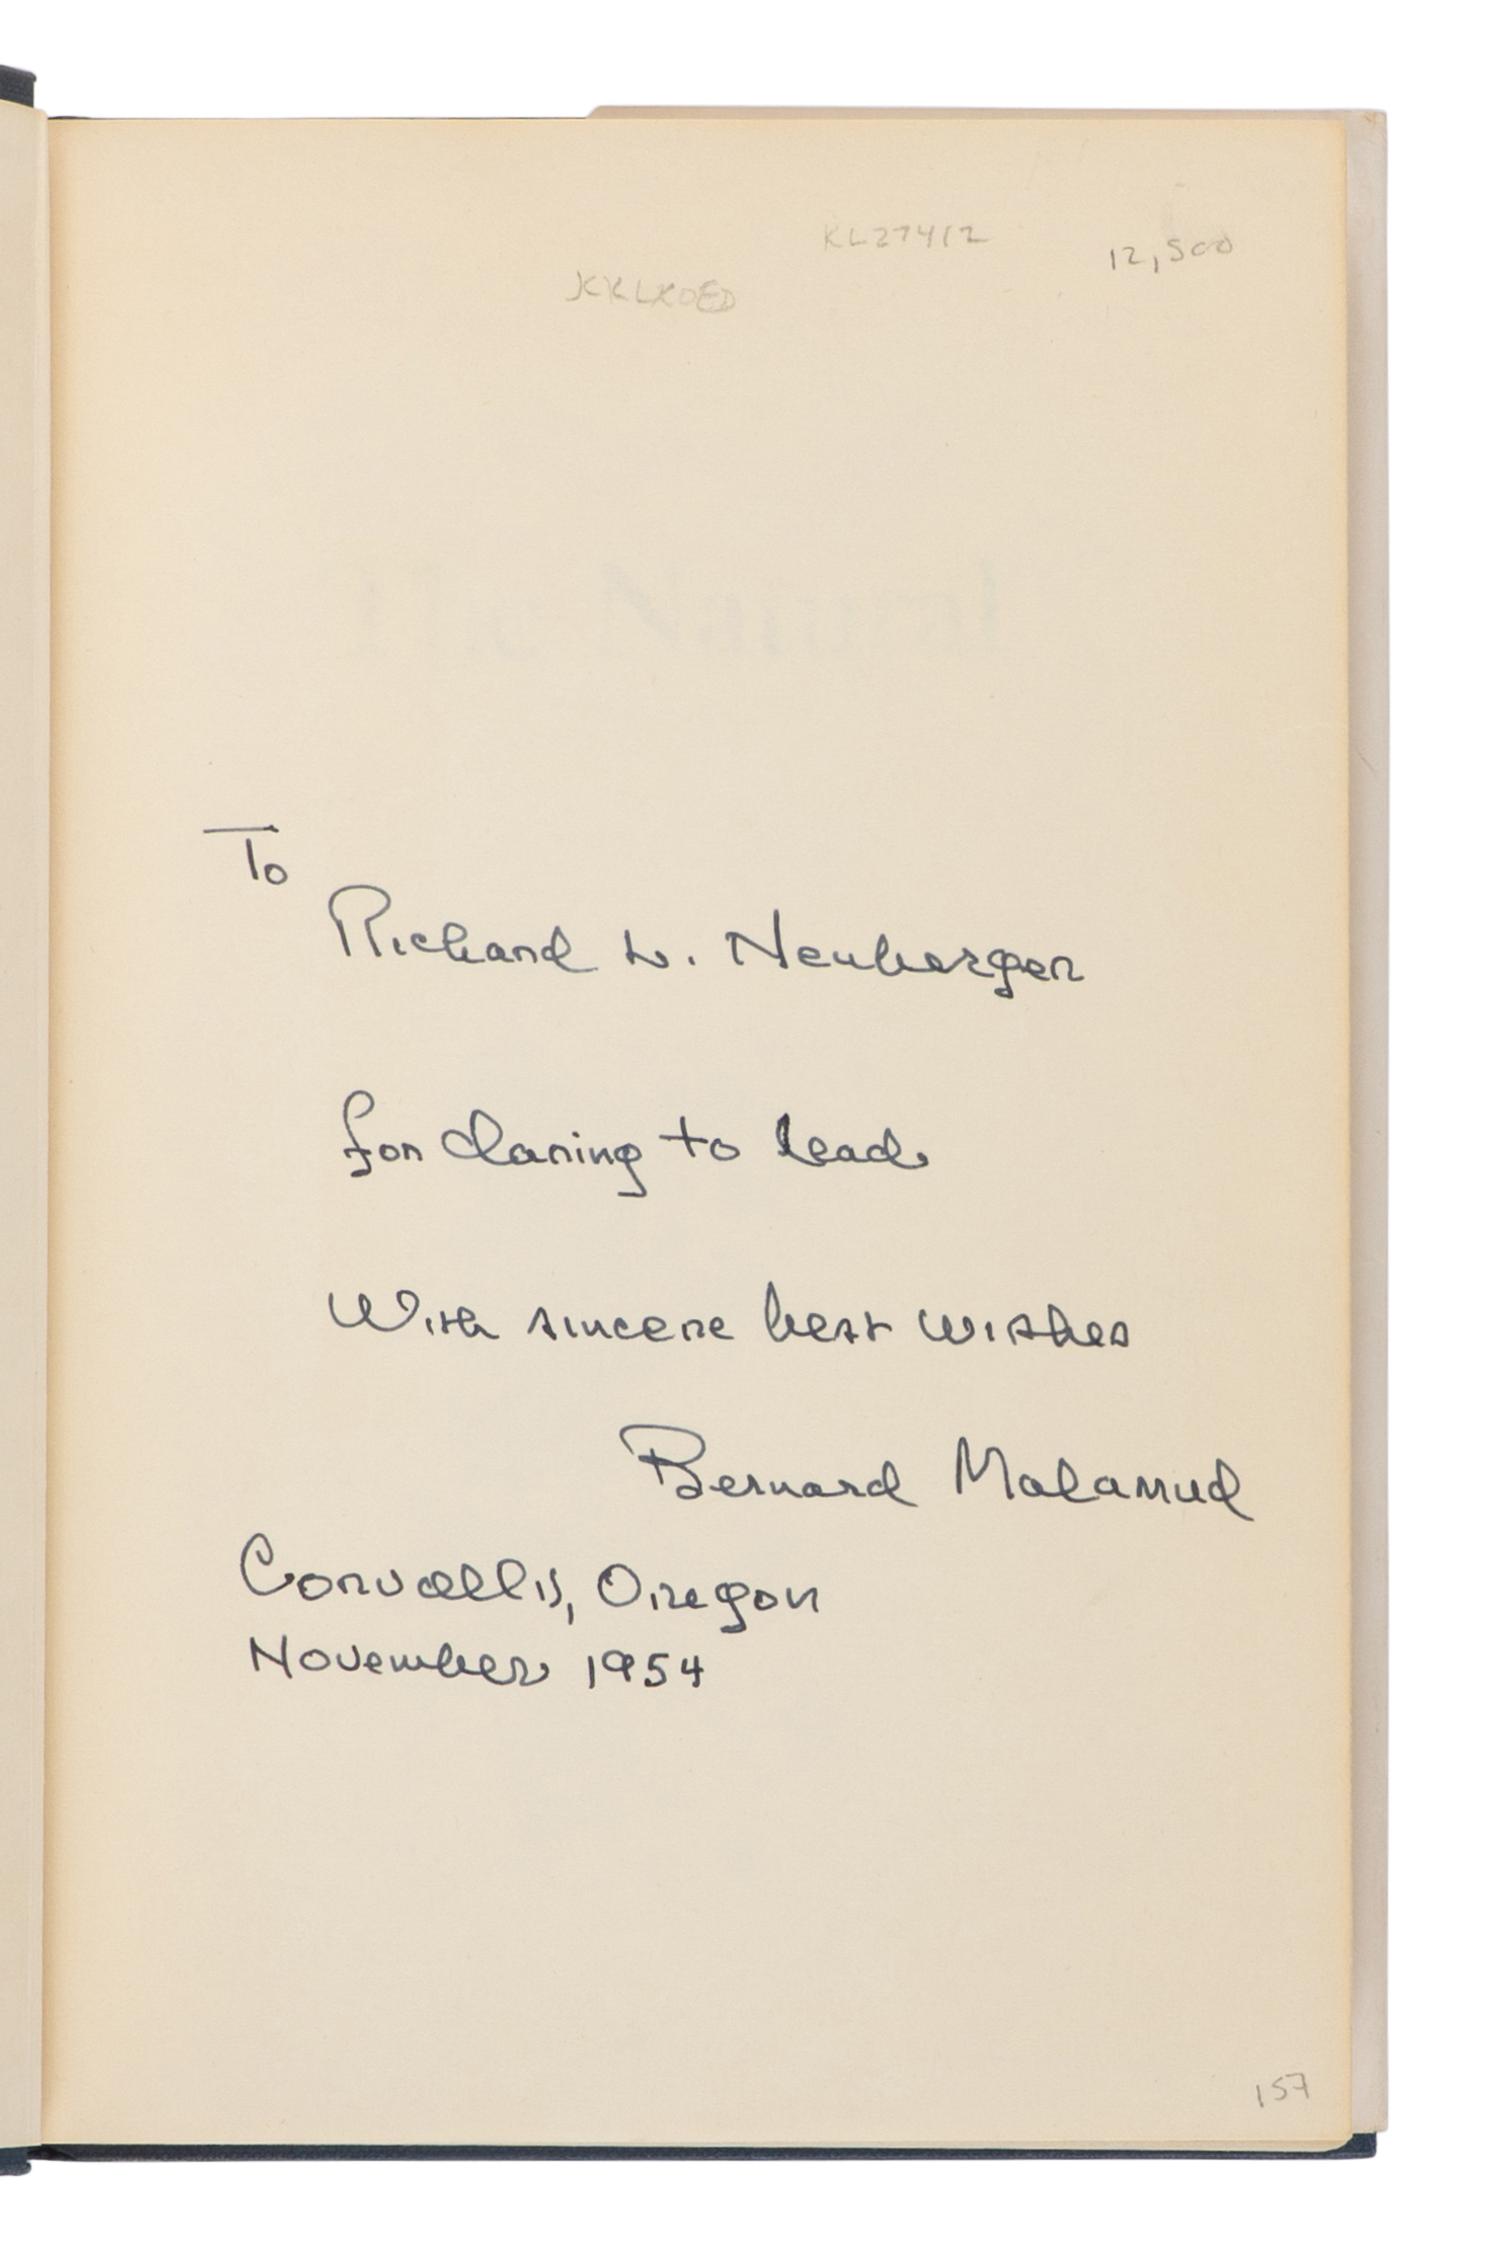 KL27412
12,500
KKLXOED
The Natural
To
Richard L. Neuberger
for daring to lead
With sincere best wishes
Bernard Malamud
Corvallis, Oregon
November 1954
157